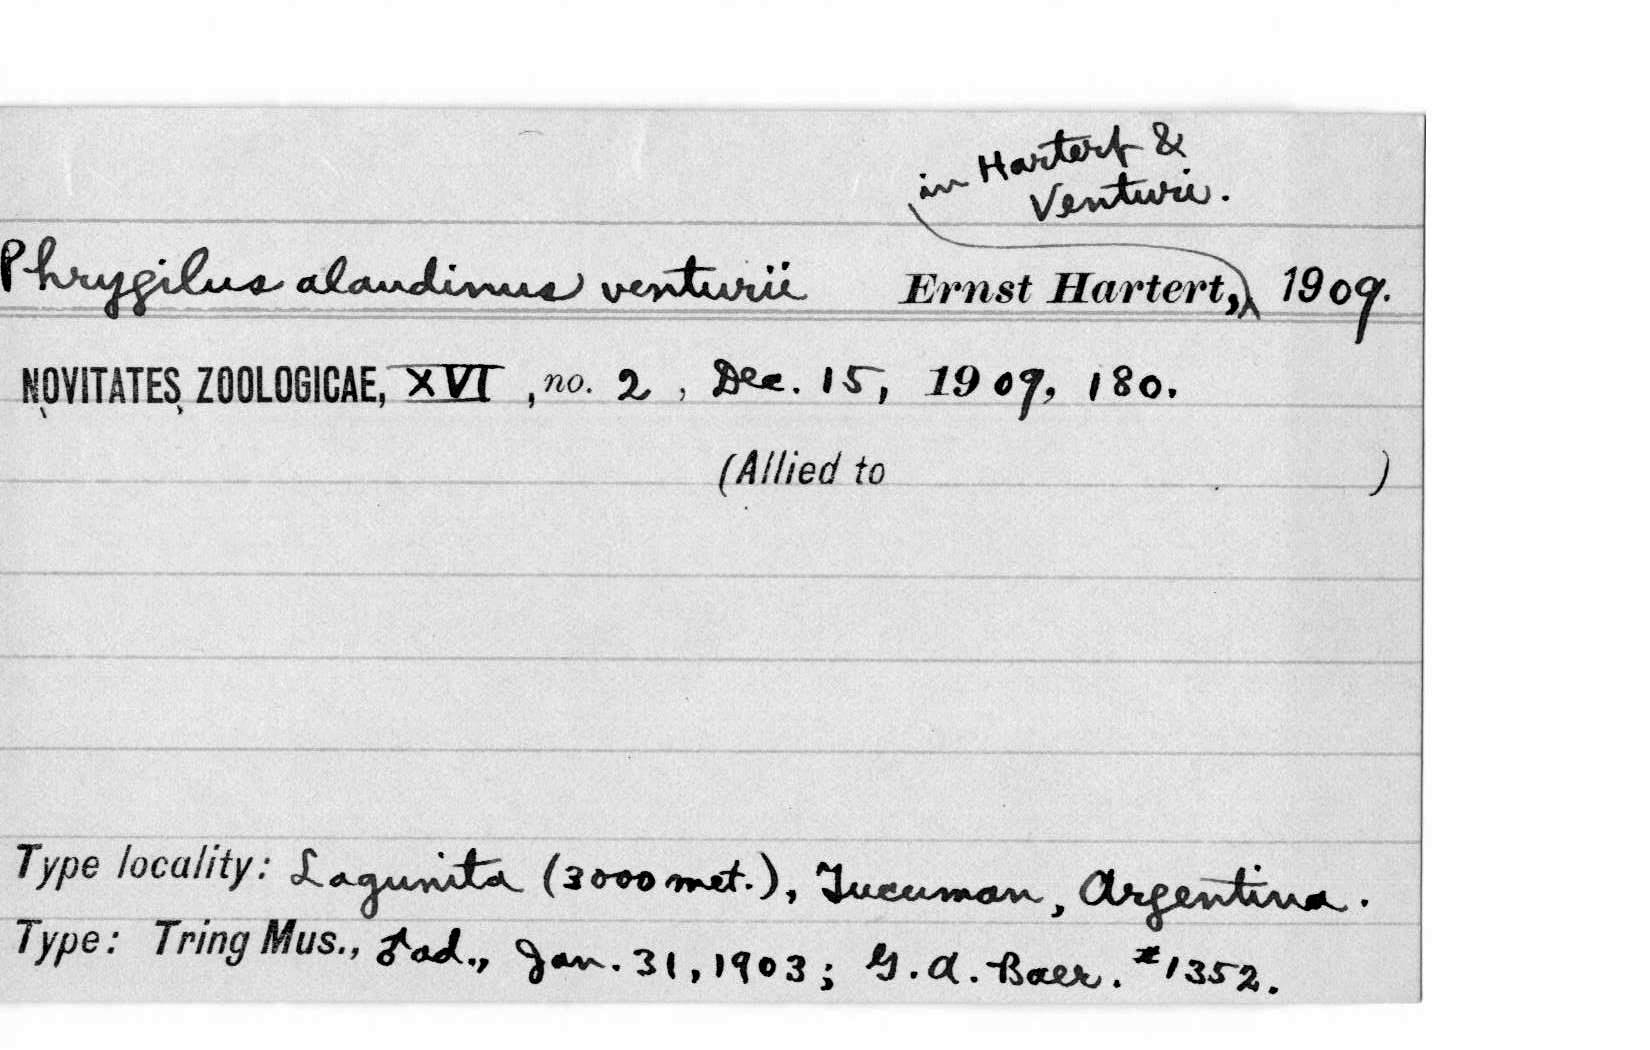 in Hartert &
Venturi.
Phrygilus alaudinus venturii Ernst Hartert, 1909.
NOVITATES ZOOLOGICAE, XVI, no. 2, Dec. 15, 1909, 180.
(Allied to )
Type locality: Lagunita (3000 met.), Tucuman, Argentina.
Type: Tring Mus., ♂ ad., Jan. 31, 1903; G. A. Baer. #1352.